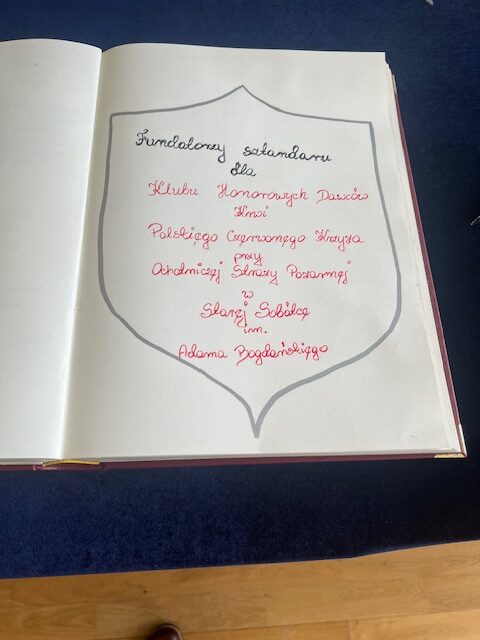 Fundatorzy sztandaru
dla
Klubu Honorowych Dawców
Krwi
Polskiego Czerwonego Krzyża
przy
Ochotniczej Straży Pożarnej
w
Starej Sobótce
im.
Adama Bogdańskiego